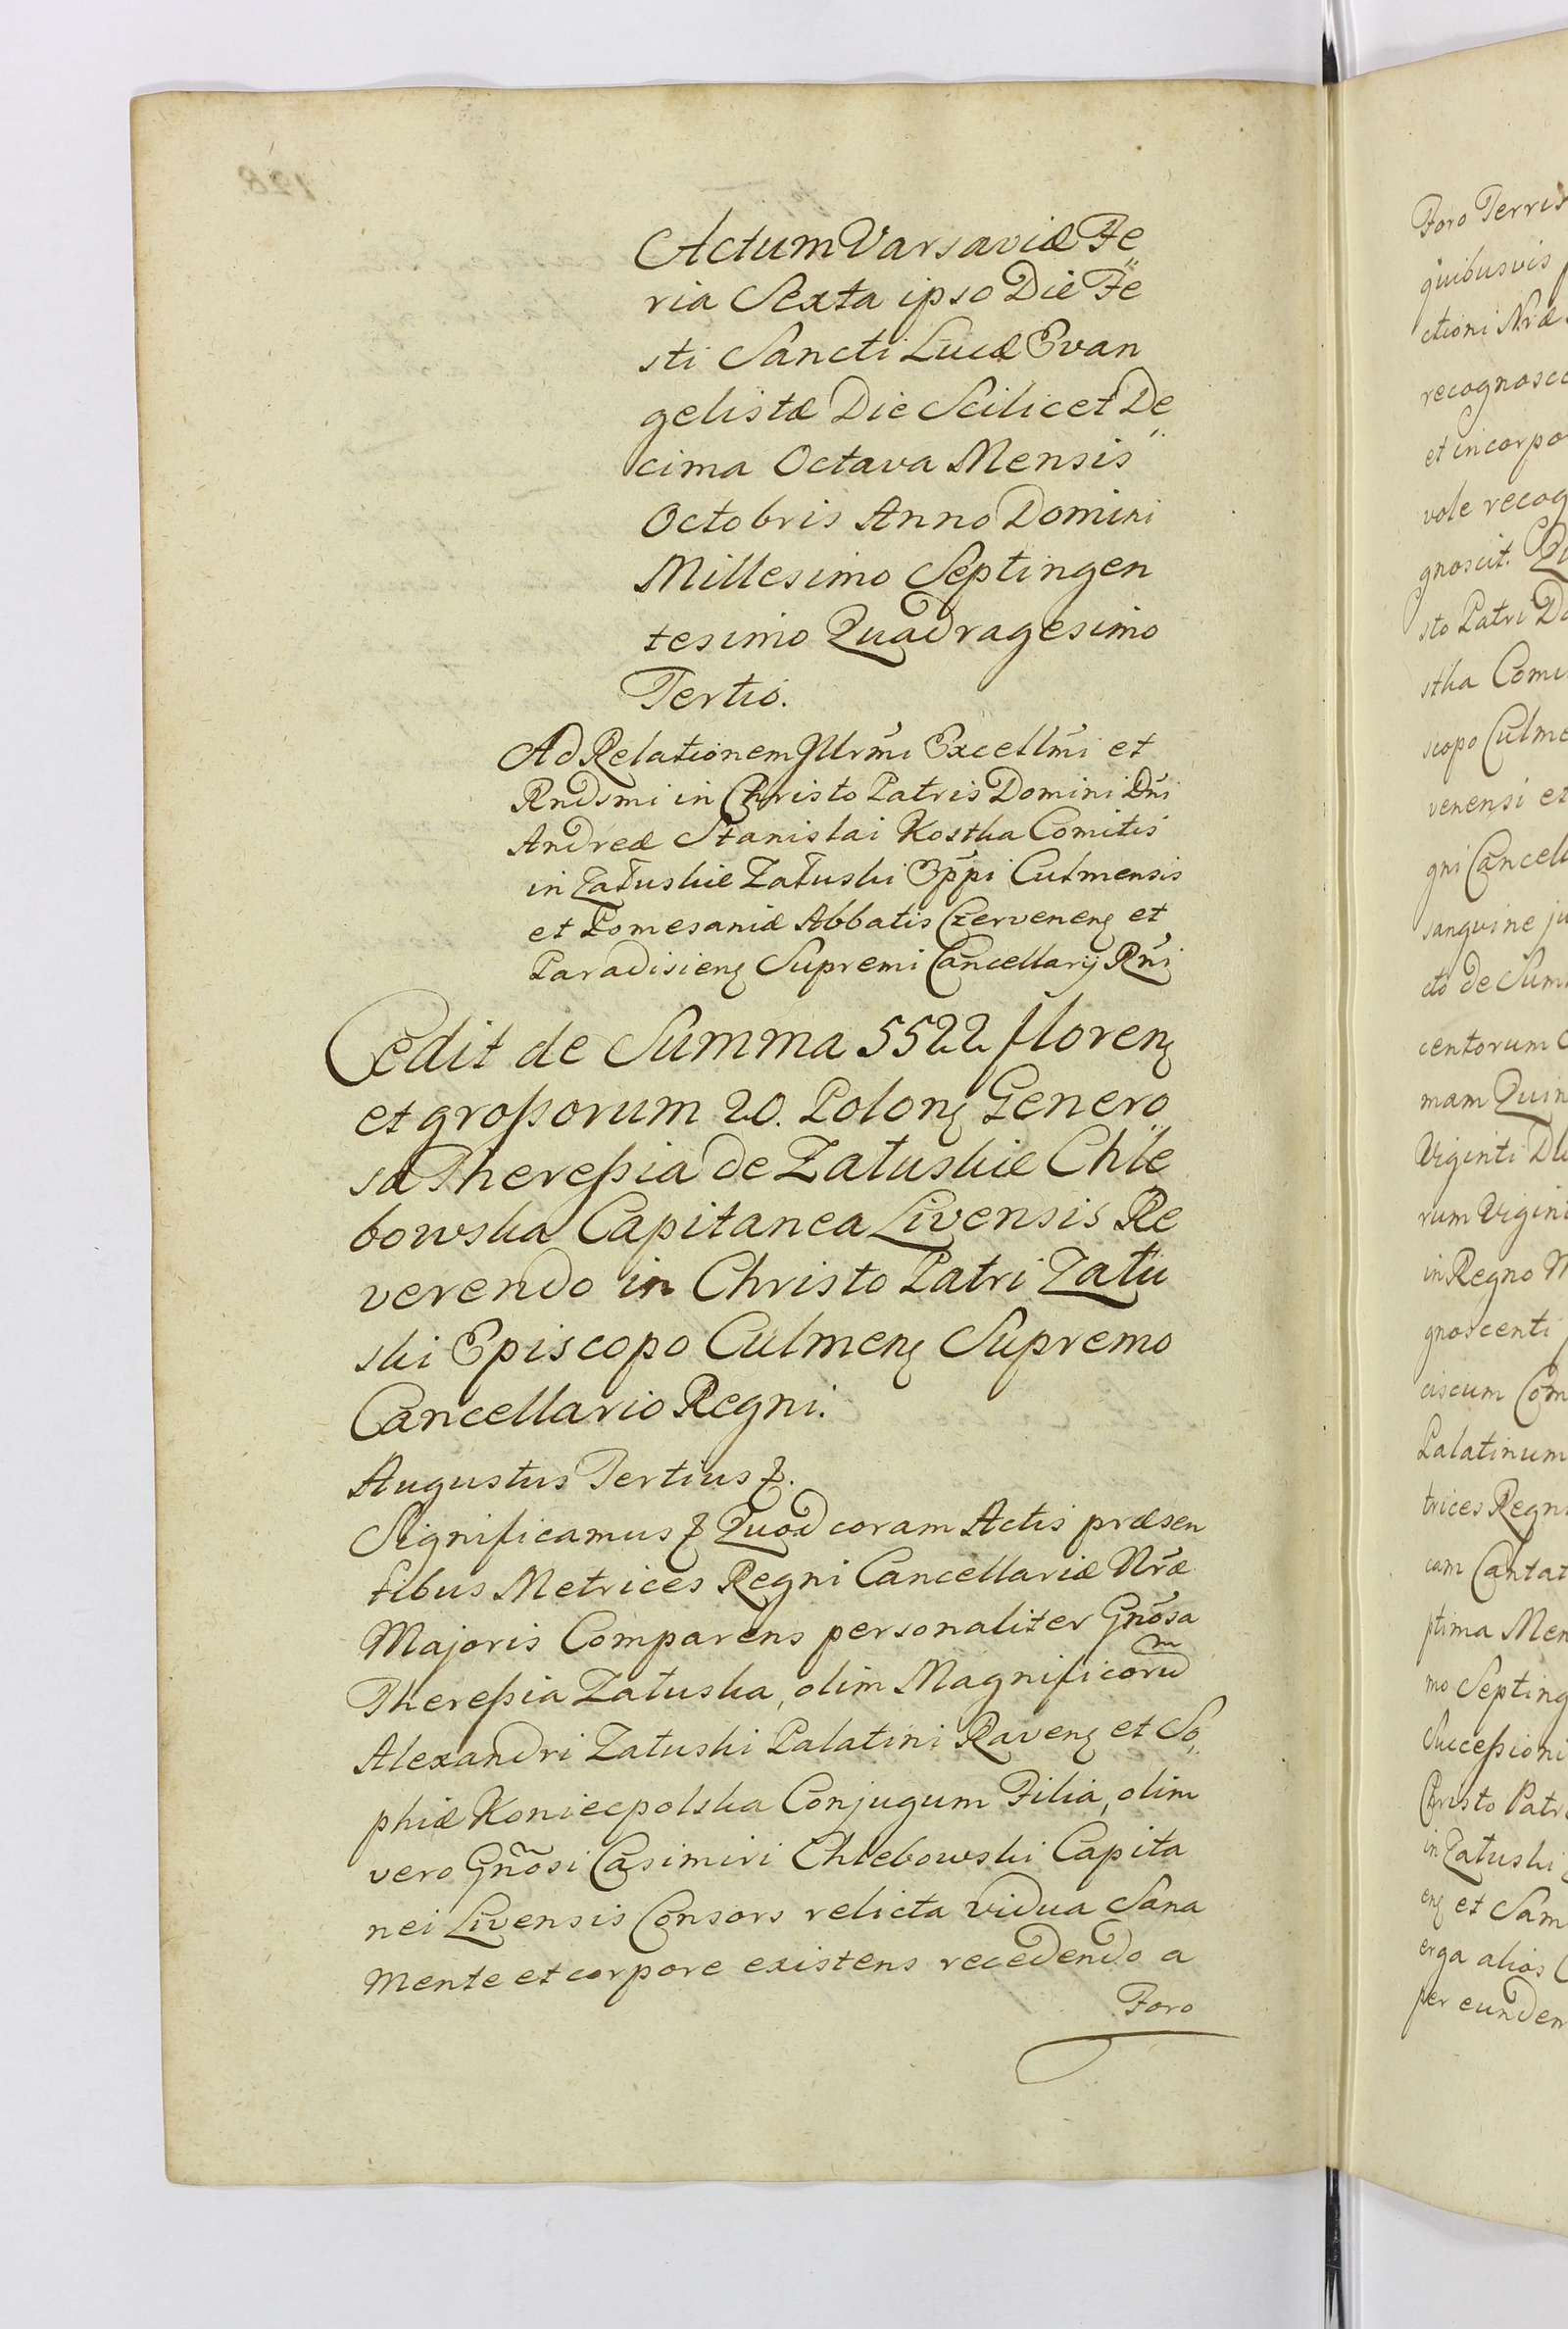 Actum Varsaviæ Fe
ria Sexta ipso Die Fe
sti Sancti Lucæ Evan
gelistæ Die Scilicet De
cima Octava Mensis
Octobris Anno Domini
Millesimo Septingen
tesimo Quadragesimo
Tertio.
Ad Relationem Illrm̃i Excellm̃i et
Rndsmi in Christo Patris Domini Dñi
Andreæ Stanislai Kostka Comitis
in Załuskie Załuski Eppi Culmensis
et Pomesaniæ Abbatis Czervenenʒ et
Paradisienʒ Supremi Cancellarij Rñi
Cedit de Summa 5522 florenʒ
et großorum 20. Polonʒ Genero
sa Thereßia de Załuskie Chle
bowska Capitanea Livensis Re
verendo in Christo Patri Zału
ski Episcopo Culmenʒ Supremo
Cancellario Regni.
Augustus Tertius ʒ.
Significamus ʒ Quod coram Actis præsen
tibus Metrices Regni Cancellariæ Nræ
Majoris Comparens personaliter Gnõsa
Thereßia Załuska, olim Magnificorũ
Alexandri Załuski Palatini Ravenʒ et So
phiæ Koniecpolska Conjugum Filia, olim
vero Gnõsi Casimiri Chlebowski Capita
nei Livensis Consors relicta vidua Sana
mente et corpore existens recedendo a
Foro
Foro Terris
quibusvis
ctioni Nræ
recognosc
et incorpo
vole recog
gnoscit.
sto Patri D
stka Comi
scopo Culme
venensi et
gni Cancell
sanguine ju
cto de Sum
centorum
mam Quin
Viginti
rum Vigin
in Regno
gnoscenti
ciscum Com
Palatinum
trices Regn
cam Cantat
ptima Men
mo Septing
Succeßioni
Christo Patr
in Załuski
enʒ et Sam
erga alios
per eundem